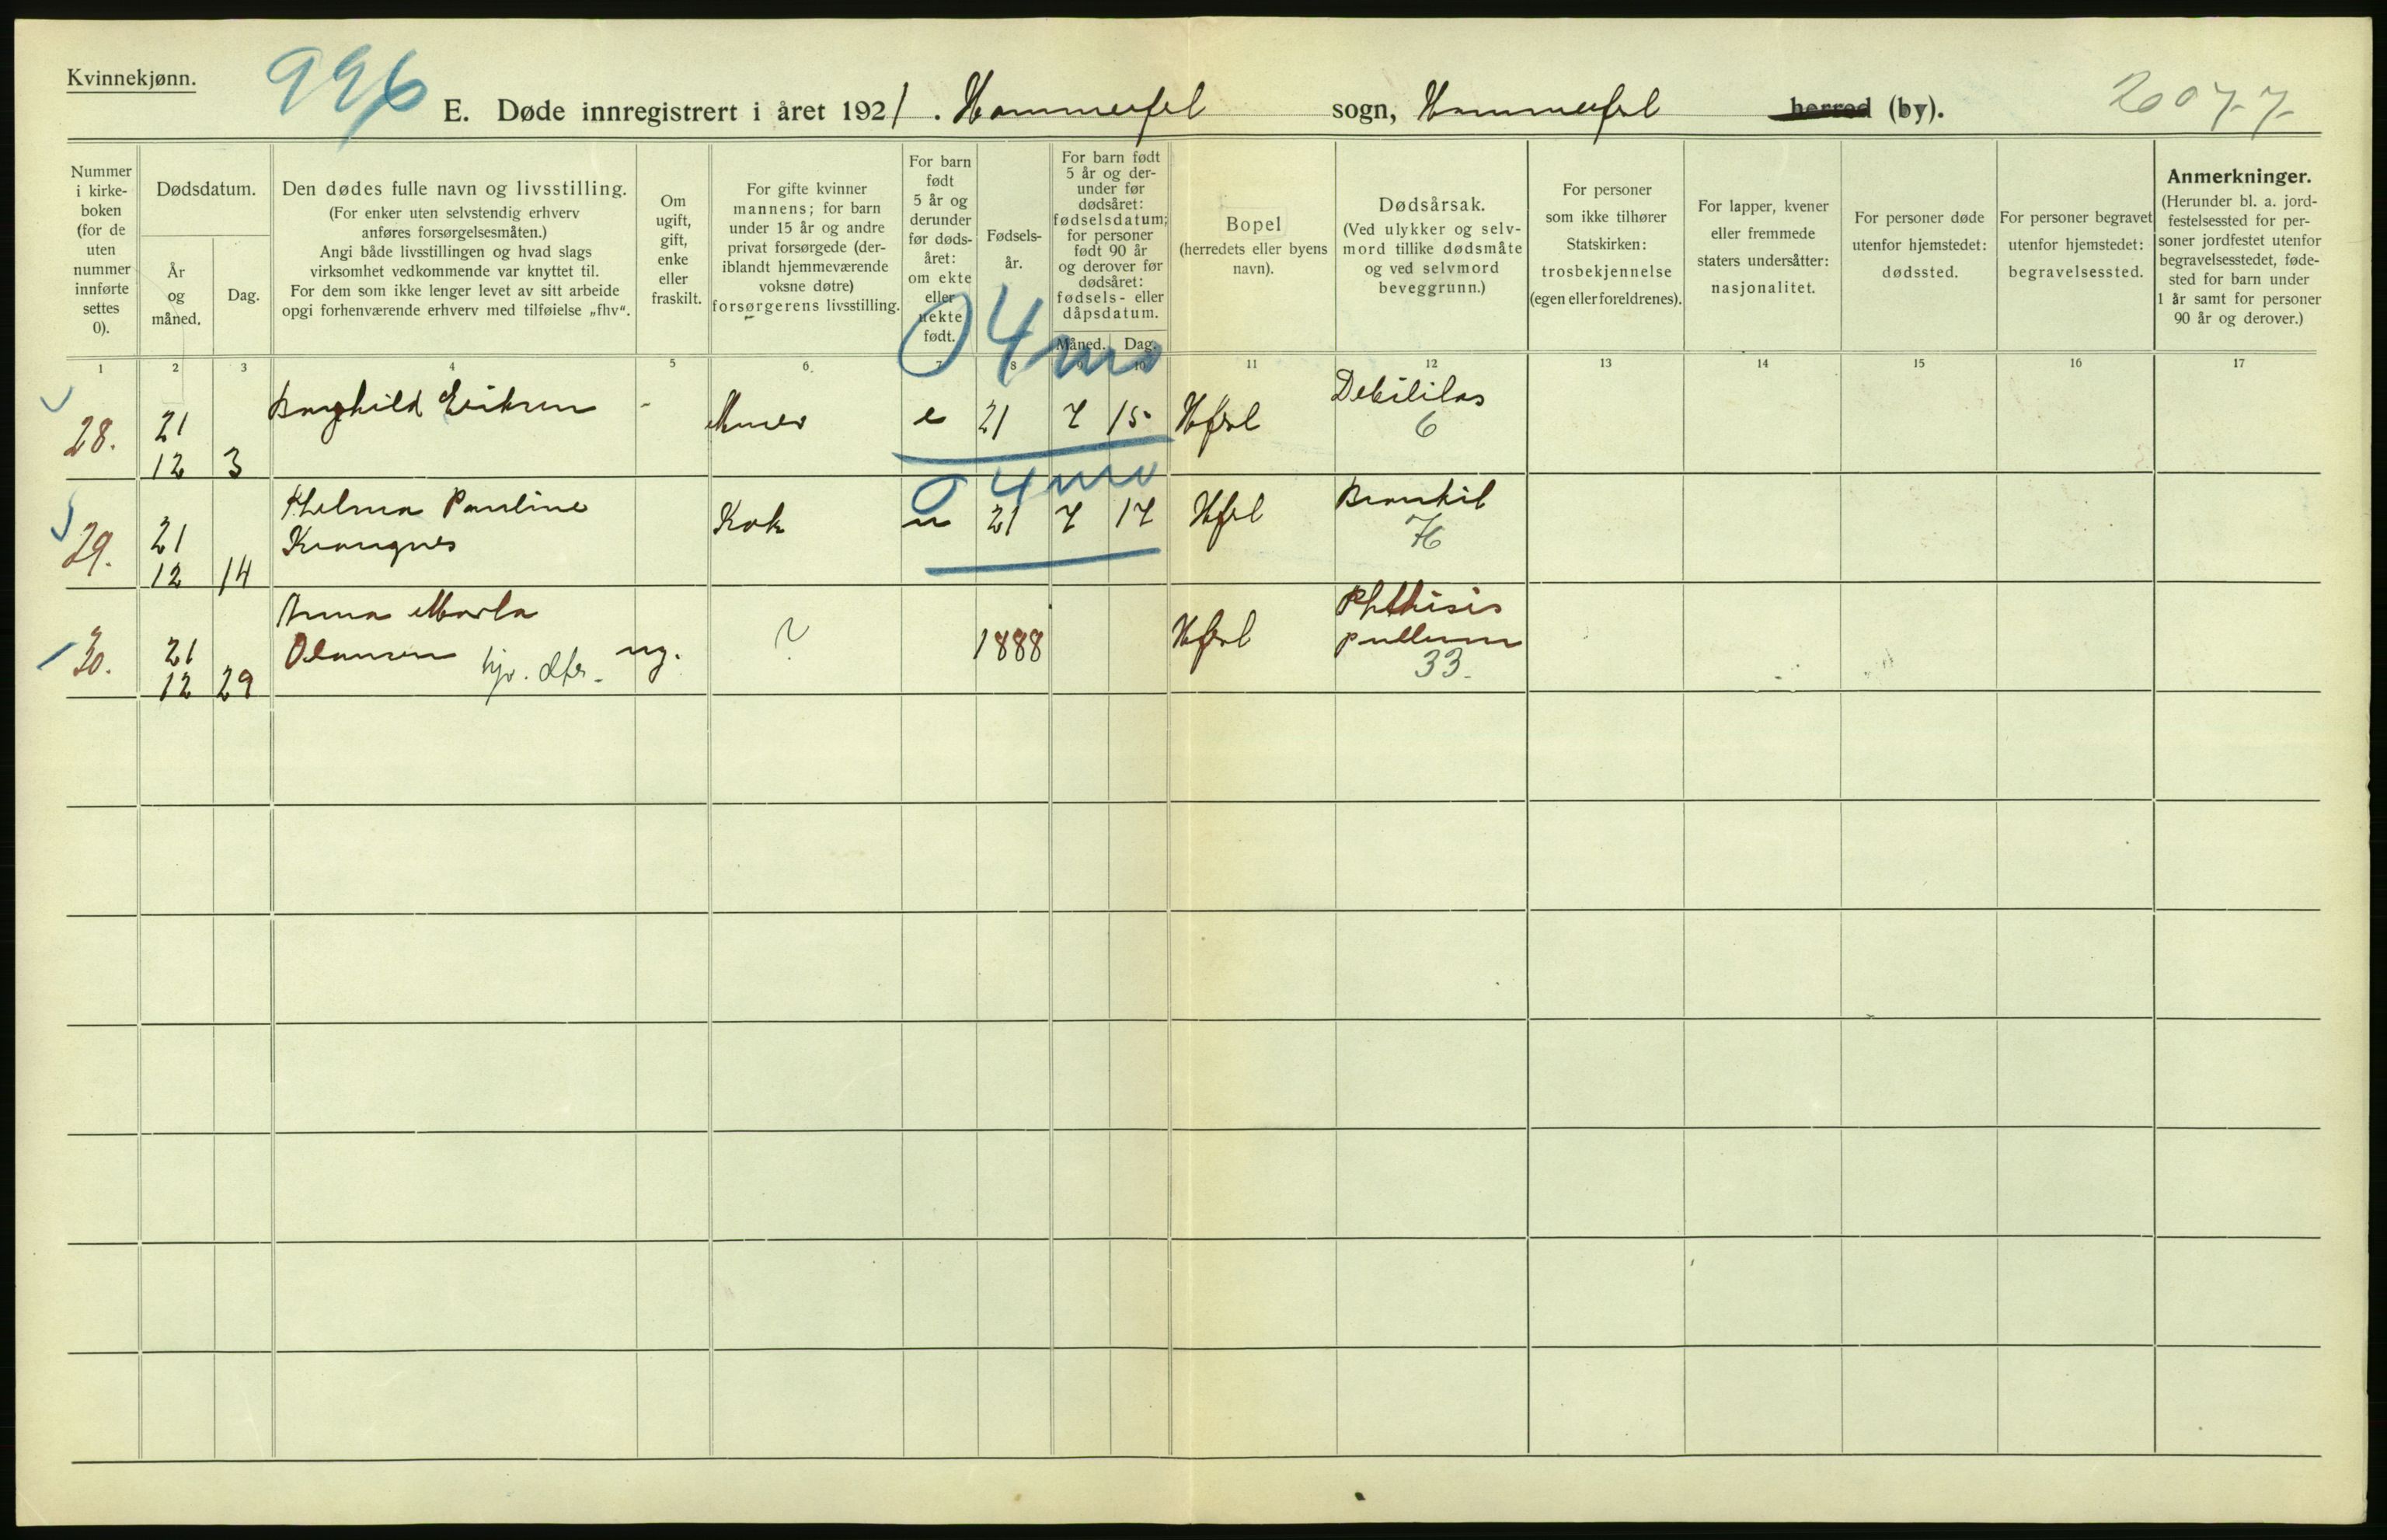 Kvinnekjønn.
996
E. Døde innregistrert i året 1921. Hammerfest sogn, Hammerfest herred (by).
2077
Nummer i kirkeboken (for de uten nummer innførte settes 0).
Dødsdatum.
År og måned.
Dag.
Den dødes fulle navn og livsstilling.
(For enker uten selvstendig erhverv anføres forsørgelsesmåten.)
Angi både livsstillingen og hvad slags virksomhet vedkommende var knyttet til.
For dem som ikke lenger levet av sitt arbeide opgi forhenværende erhverv med tilføielse „fhv“.
Om ugift, gift, enke eller fraskilt.
For gifte kvinner mannens; for barn under 15 år og andre privat forsørgede (deriblandt hjemmeværende voksne døtre) forsørgerens livsstilling.
For barn født 5 år og derunder før dødsåret: om ekte eller uekte født.
Fødselsår.
For barn født 5 år og derunder før dødsåret: fødselsdatum; for personer født 90 år og derover før dødsåret: fødsels- eller dåpsdatum.
Måned. Dag.
Bopel (herredets eller byens navn).
Dødsårsak.
(Ved ulykker og selvmord tillike dødsmåte og ved selvmord beveggrunn.)
For personer som ikke tilhører Statskirken: trosbekjennelse (egen eller foreldrenes).
For lapper, kvener eller fremmede staters undersåtter: nasjonalitet.
For personer døde utenfor hjemstedet: dødssted.
For personer begravet utenfor hjemstedet: begravelsessted.
Anmerkninger.
(Herunder bl. a. jordfestelsessted for personer jordfestet utenfor begravelsesstedet, fødested for barn under 1 år samt for personer 90 år og derover.)
1 2 3 4 5 6 7 8 9 10 11 12 13 14 15 16 17
04 mo
28. 21 12 3 Borghild Eriksen - Murer e 21 7 15 Hfest Debilitas 6
04 mo
29. 21 12 14 Thelma Pauline Krongnes Kok u 21 7 17 Hfest Bronkit 76
30. 21 12 29 Anna Marla Olausen hjv. dtr. ug. ? 1888 Hfest Phthisis pullum 33.